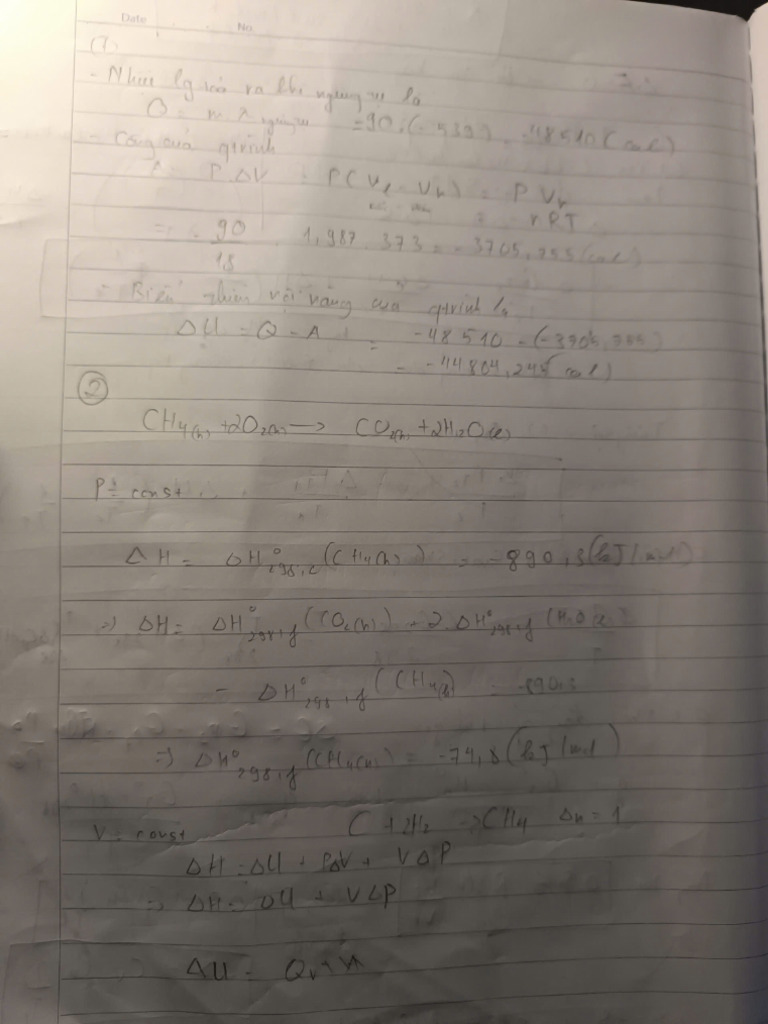 Date No.
(1)
- Nhiệt lg toả ra khi ngưng tụ là
Q = m λ ngưng tụ = 90.(-539) = -48510 (cal)
- Công của qtrình
A = P.ΔV = P(Vl - Vh) = P Vh
= nRT
= - 90/18 . 1,987 . 373 = -3705,755 (cal)
- Biến thiên nội năng của qtrình là
ΔU = Q - A = -48510 - (-3705,755)
= -44804,245 (cal)
(2)
CH4(h) + 2O2(h) → CO2(h) + 2H2O(l)
P = const
ΔH = ΔH°298,c (CH4(h)) = -890,3 (kJ/mol)
=> ΔH = ΔH°298,f (CO2(h)) + 2.ΔH°298,f (H2O(l))
- ΔH°298,f (CH4(h)) = -890,3
=> ΔH°298,f (CH4(h)) = -74,8 (kJ/mol)
V = const C + 2H2 → CH4 Δn = 1
ΔH = ΔU + PΔV + VΔP
=> ΔH = ΔU + VΔP
ΔU = Qv + A